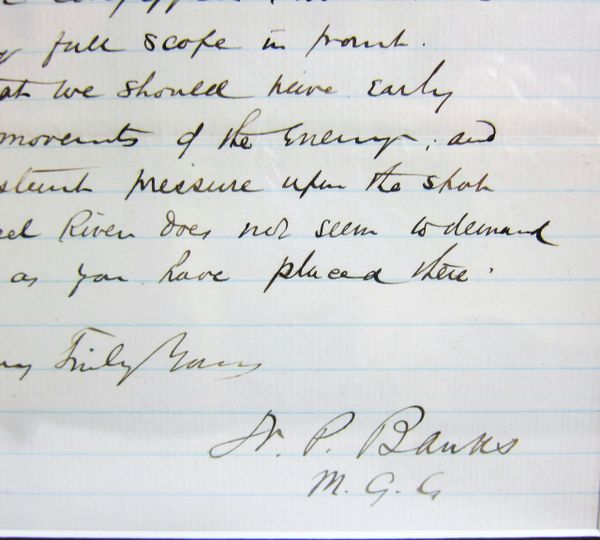 full scope in front.
at we should have early
movements of the Enemy, and
pressure upon the
River does not seem to demand
as you have placed there.
Truly Yours
N. P. Banks
M. G. C